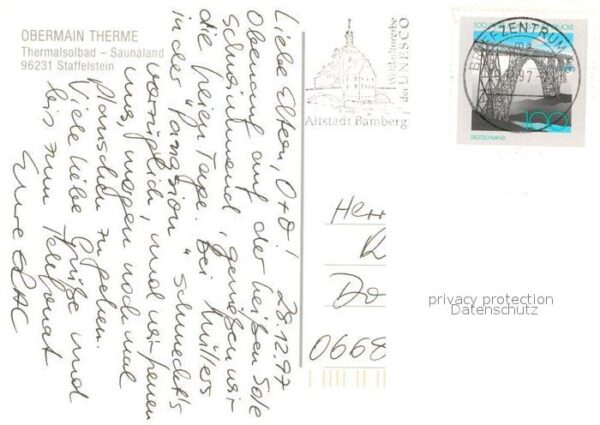 OBERMAIN THERME
Thermalsolbad – Saunaland
96231 Staffelstein
28.12.97
Liebe Eltern, O+O!
Obenauf auf der heißen Sole
schwimmend, genießen wir
die freien Tage. Bei Müllers
in der "Pension" schmeckt's
vorzüglich, und wir freuen
uns, morgen noch mal
planschen zu gehen.
Viele liebe Grüße und
bis zum Telefonat
Eure
Altstadt Bamberg
Weltkulturerbe
der UNESCO
BRIEFZENTRUM
97
100
DEUTSCHLAND
Herr
Do
0668
privacy protection
Datenschutz